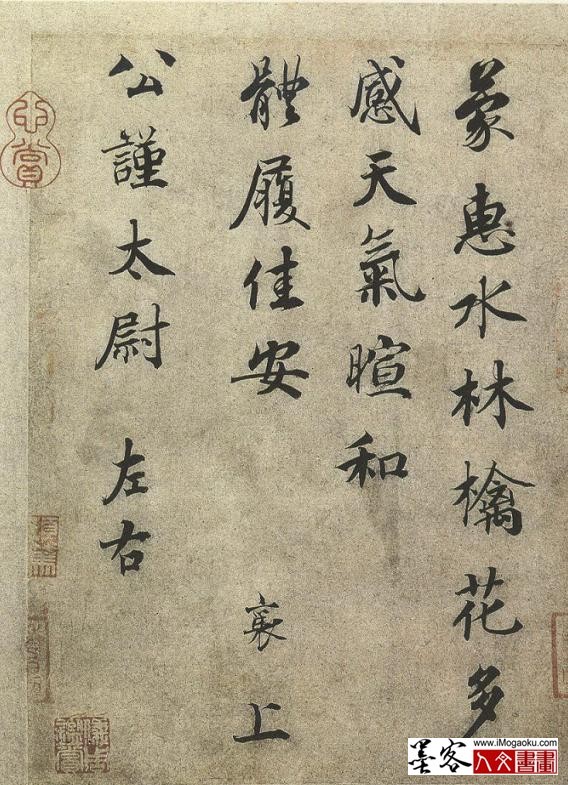 蒙惠水林檎花多
感天氣暄和
體履佳安 襄上
公謹太尉 左右
墨客
www.iMogaoku.com
人文書畫